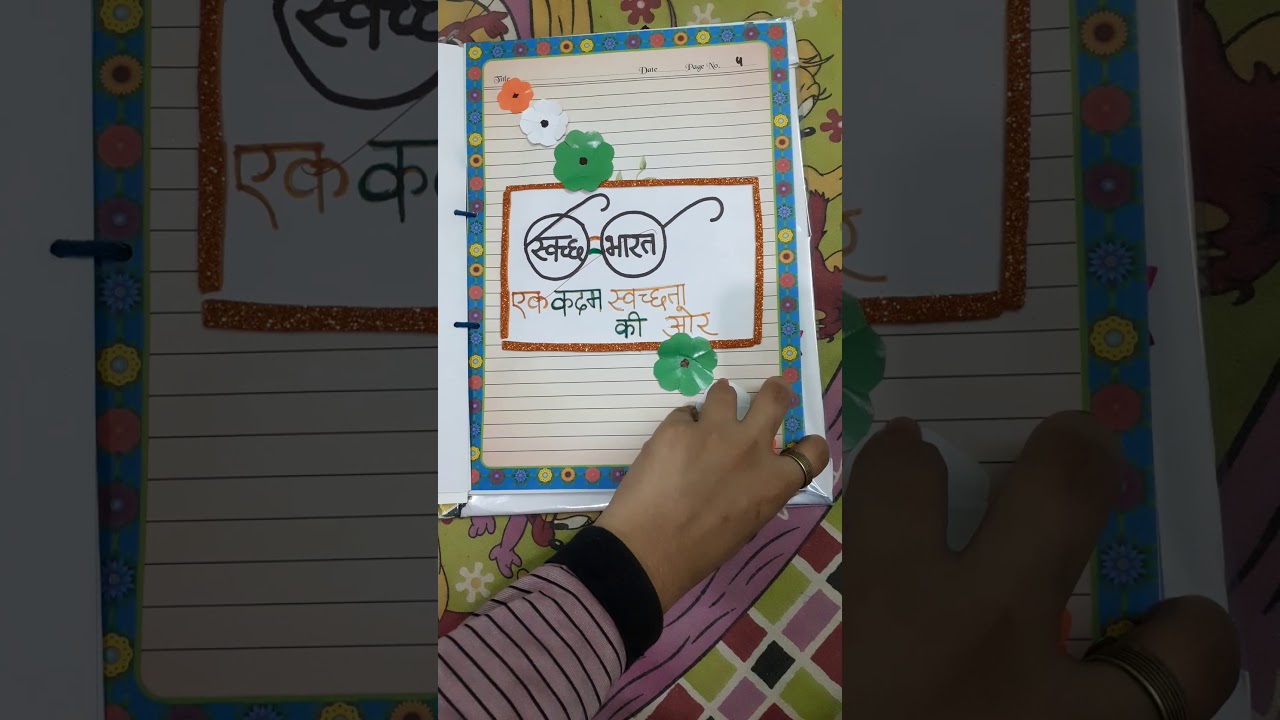 Title Date Page No. 4
स्वच्छ भारत
एक कदम स्वच्छता
की ओर